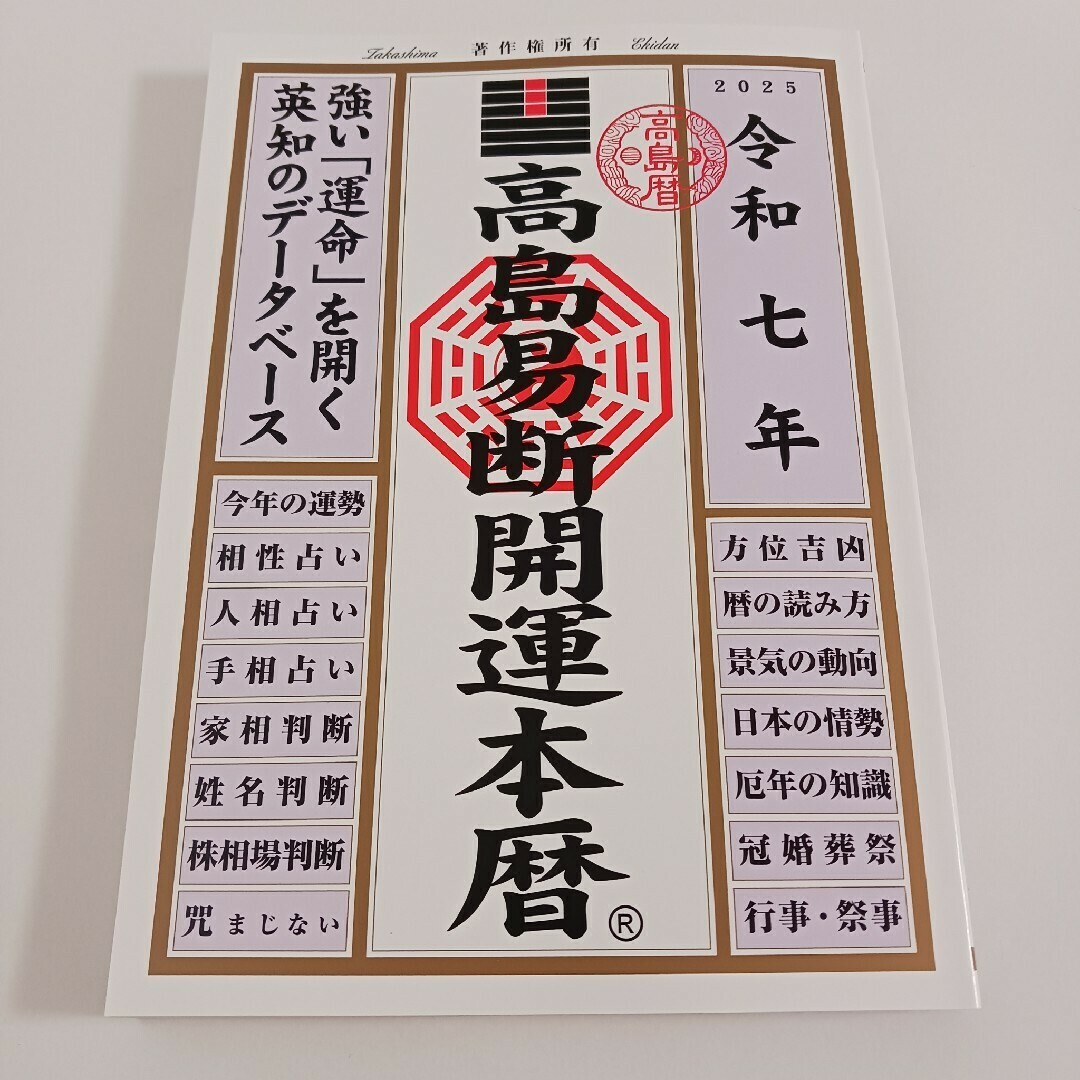 Takashima 著作権所有 Ekidan
2025
令和七年
高島暦
高島易断開運本暦
®
強い「運命」を開く
英知のデータベース
方位吉凶
暦の読み方
景気の動向
日本の情勢
厄年の知識
冠婚葬祭
行事・祭事
今年の運勢
相性占い
人相占い
手相占い
家相判断
姓名判断
株相場判断
咒まじない